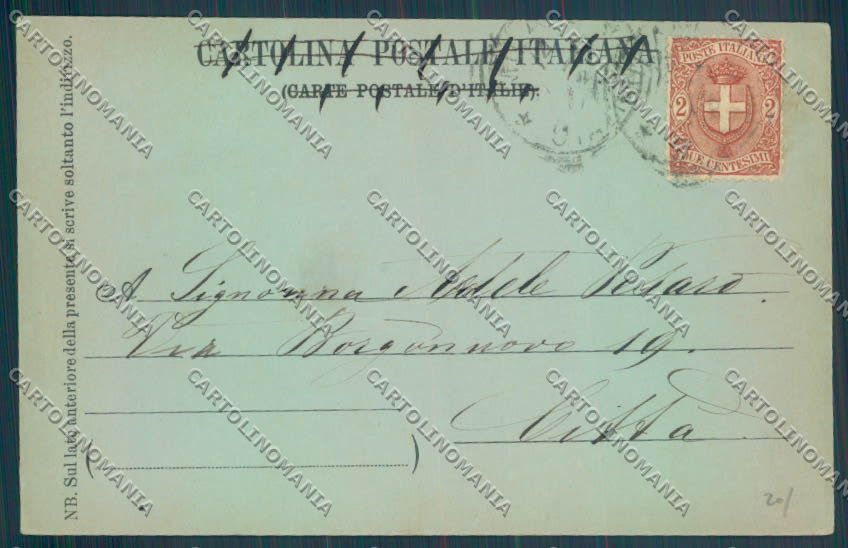 CARTOLINA POSTALE ITALIANA
(CARTE POSTALE D'ITALIE).
POSTE ITALIANE
2 2
DUE CENTESIMI
NB. Sul lato anteriore della presente si scrive soltanto l'indirizzo.
A Signorina Adele Pesaro.
Via Borgonuovo 19.
Città
20/
CARTOLINOMANIA